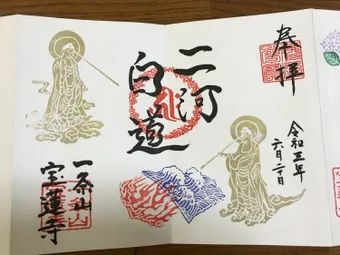 奉拝
令和三年
六月二十日
二河
白道
一条山
宝蓮寺